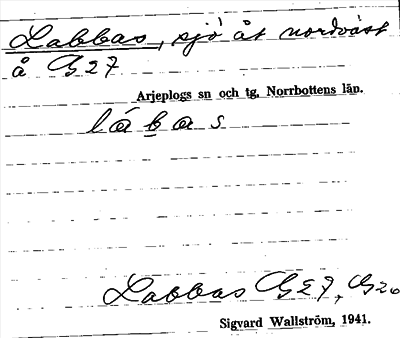 Labbas, sjö åt nordväst
å G27
Arjeplogs sn och tg, Norrbottens län.
lábas
Labbas G27, G26
Sigvard Wallström, 1941.